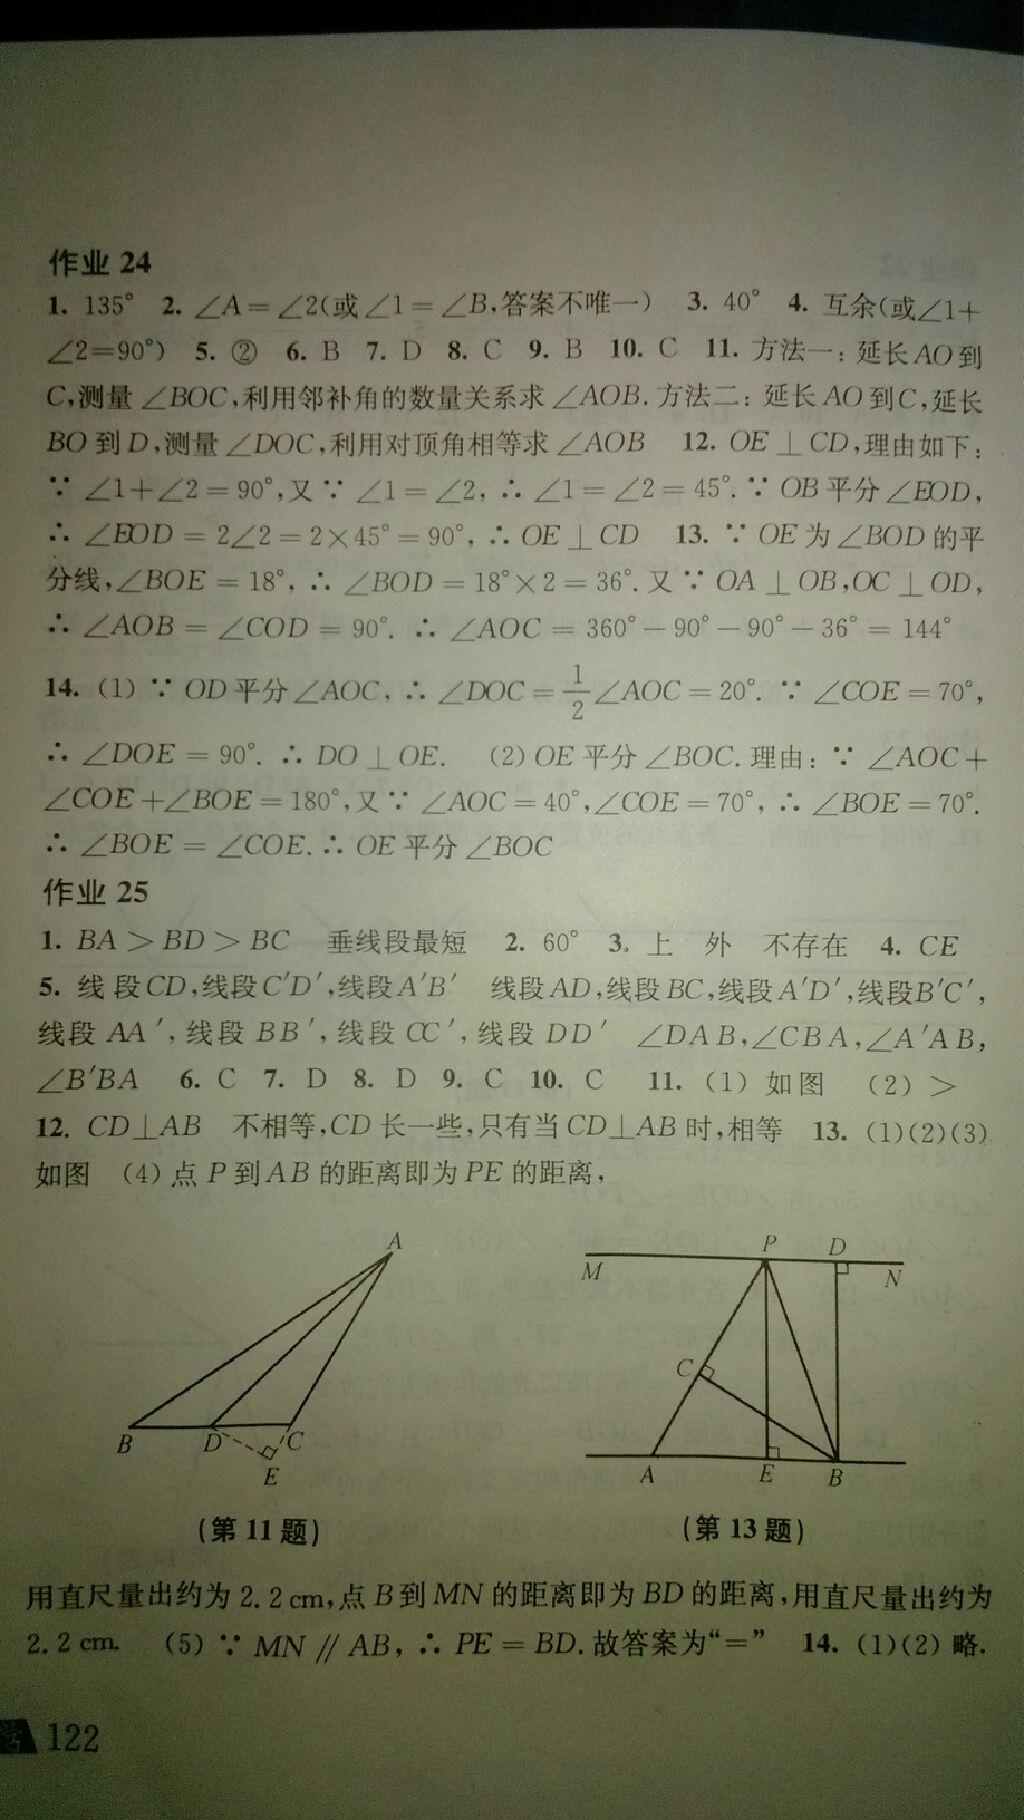 作业 24
1. 135° 2. ∠A=∠2(或∠1=∠B,答案不唯一) 3. 40° 4. 互余(或∠1+
∠2=90°) 5. ② 6. B 7. D 8. C 9. B 10. C 11. 方法一:延长AO到
C,测量∠BOC,利用邻补角的数量关系求∠AOB.方法二:延长AO到C,延长
BO到D,测量∠DOC,利用对顶角相等求∠AOB 12. OE⊥CD,理由如下:
∵ ∠1+∠2=90°,又∵ ∠1=∠2, ∴ ∠1=∠2=45°.∵ OB平分∠EOD,
∴ ∠EOD=2∠2=2×45°=90°, ∴ OE⊥CD 13. ∵ OE为∠BOD的平
分线,∠BOE=18°, ∴ ∠BOD=18°×2=36°.又∵ OA⊥OB,OC⊥OD,
∴ ∠AOB=∠COD=90°. ∴ ∠AOC=360°-90°-90°-36°=144°
14. (1) ∵ OD平分∠AOC, ∴ ∠DOC=1/2∠AOC=20°. ∵ ∠COE=70°,
∴ ∠DOE=90°. ∴ DO⊥OE. (2) OE平分∠BOC.理由: ∵ ∠AOC+
∠COE+∠BOE=180°,又∵ ∠AOC=40°,∠COE=70°, ∴ ∠BOE=70°.
∴ ∠BOE=∠COE.∴ OE平分∠BOC
作业 25
1. BA>BD>BC 垂线段最短 2. 60° 3. 上 外 不存在 4. CE
5. 线段CD,线段C′D′,线段A′B′ 线段AD,线段BC,线段A′D′,线段B′C′,
线段AA′,线段BB′,线段CC′,线段DD′ ∠DAB,∠CBA,∠A′AB,
∠B′BA 6. C 7. D 8. D 9. C 10. C 11. (1) 如图 (2) >
12. CD⊥AB 不相等,CD长一些,只有当CD⊥AB时,相等 13. (1)(2)(3)
如图 (4) 点P到AB的距离即为PE的距离,
A
B D C
E
(第11题)
P D
M N
C
A E B
(第13题)
用直尺量出约为2.2 cm,点B到MN的距离即为BD的距离,用直尺量出约为
2.2 cm. (5) ∵ MN∥AB, ∴ PE=BD.故答案为“=” 14. (1)(2) 略.
学 122